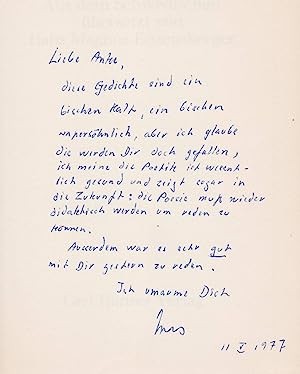 Liebe Antje,
diese Gedichte sind ein
bischen kalt, ein bischen
unpersöhnlich, aber ich glaube
die werden Dir doch gefallen,
ich meine die Poetik ist wesent-
lich gesund und zeigt sogar in
die Zukunft: die Poesie muß wieder
didaktisch werden um reden zu
können.
Ausserdem war es sehr gut
mit Dir gestern zu reden.
Ich umarme Dich
11 V 1977